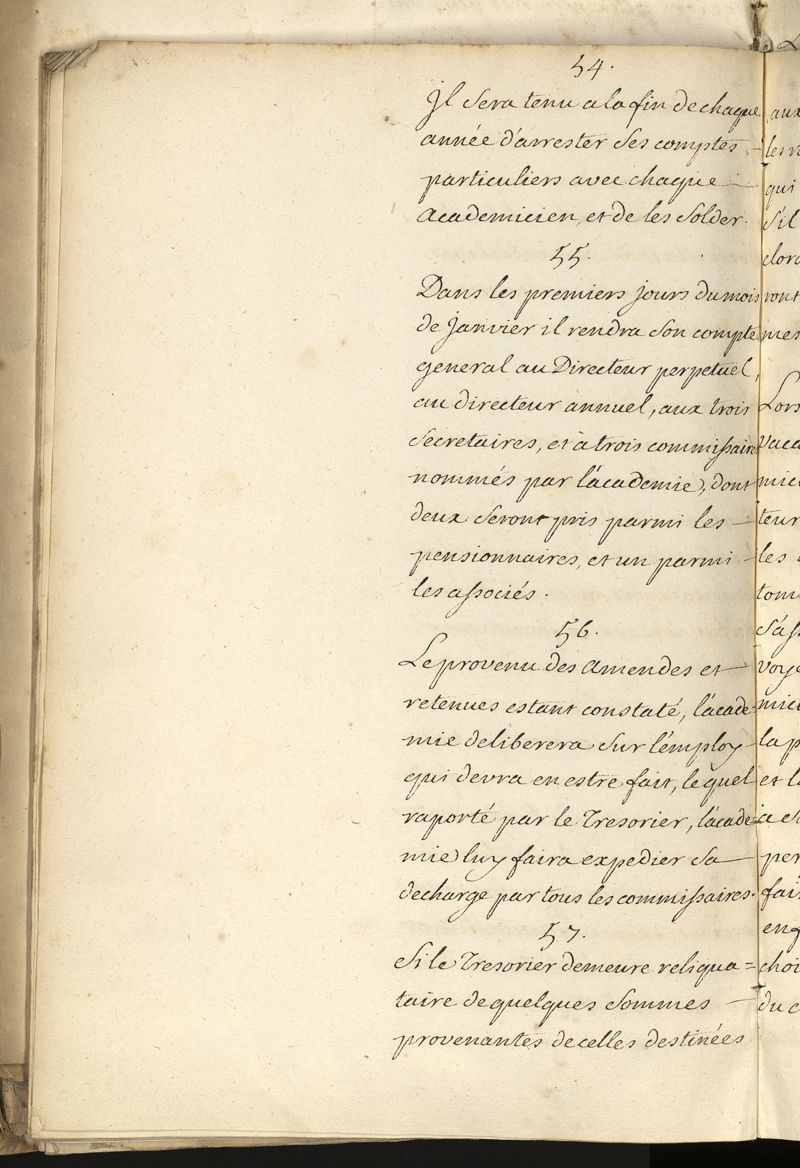 54.
Il sera tenu a la fin de chaque
année d'arrester ses comptes
particuliers avec chaque
academicien, et de les solder.
55.
Dans les premiers jours du mois
de Janvier il rendra son compte
general au Directeur perpetuel,
au directeur annuel, aux trois
secretaires, et à trois commissaires
nommés par l'academie, dont
deux seront pris parmi les
pensionnaires, et un parmi
les associés.
56.
Le provenu des amendes et
retenues estant constaté, l'acade=
mie deliberera sur l'employ
qui devra en estre fait, lequel
raporté par le Tresorier, l'acade=
mie luy faira expedier sa
decharge par tous les commissaires.
57.
Si le Tresorier demeure reliqua=
taire de quelques sommes
provenantes de celles destinées
aux
qui
s'il
ront
mes
Lors
vaca
mici
teur
les
tom
s'ass
voye
mici
la p
et l
per
fai
eng
choi
du c